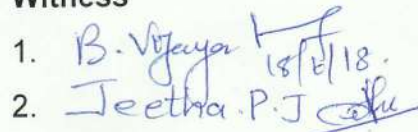 Witness
1. B. Vijaya 18/6/18.
2. Jeetha. P. J